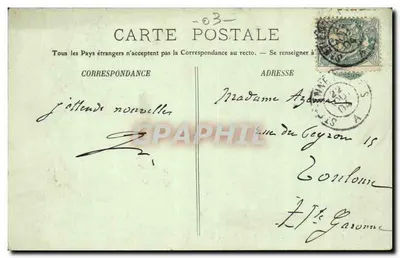 -03-
CARTE POSTALE
Tous les Pays étrangers n'acceptent pas la Correspondance au recto. — Se renseigner à
CORRESPONDANCE
ADRESSE
J'attends nouvelles
Madame
rue du Peyrou 15
Toulouse
Hte Garonne
DELPHIL
ST